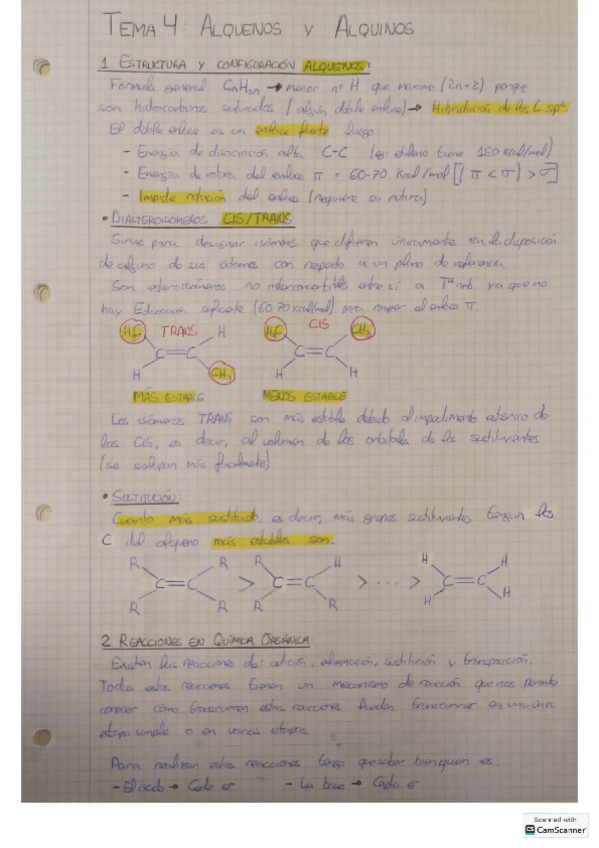 TEMA 4: ALQUENOS Y ALQUINOS
1 ESTRUCTURA Y CONFIGURACIÓN ALQUENOS:
Fórmula general CnH2n → menor nº H que máximo (2n+2) porque
son hidrocarburos saturados (algún doble enlace) → Hibridación de los C sp²
El doble enlace es un enlace fuerte luego:
- Energía de disociación alta C-C (eg: etileno tiene 150 Kcal/mol)
- Energía de rotura del enlace π = 60-70 Kcal/mol [(π < σ) > σ]
- Impide rotación del enlace (requiere su rotura)
• DIASTEROISÓMEROS CIS/TRANS:
Sirve para designar isómeros que difieren únicamente en la disposición
de alguno de sus átomos con respecto a un plano de referencia
Son estereoisómeros no interconvertibles entre sí a Tª amb. ya que no
hay E suficiente (60-70 Kcal/mol) para romper el enlace π.
H3C TRANS H H3C CIS CH3
C=C C=C
H CH3 H H
MÁS ESTABLE MENOS ESTABLE
Los isómeros TRANS son más estables debido al impedimento estérico de
los CIS, es decir, al volumen de los orbitales de los sustituyentes
(se solapan más fácilmente)
• SUSTITUCIÓN:
Cuanto más sustituido, es decir, más grupos sustituyentes tengan los
C del alqueno más estables son.
R R R H H H
C=C > C=C > ... > C=C
R R R R H H
2 REACCIONES EN QUÍMICA ORGÁNICA
Existen las reacciones de: adición, eliminación, sustitución y transposición.
Todas estas reacciones tienen un mecanismo de reacción que nos permite
conocer cómo transcurren estas reacciones. Pueden transcurrir en una única
etapa simple o en varias etapas.
Para realizar estas reacciones tengo que saber bien quien es:
- El ácido → Cede e⁻ - La base → Cede e⁻
Scanned with
CamScanner